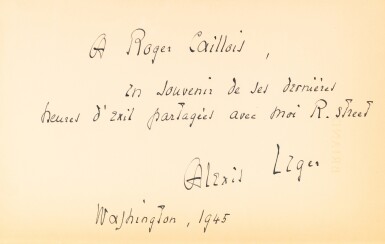 A Roger Caillois,
en souvenir de ses dernières
heures d'Exil partagées avec moi R. street
Alexis Leger
Washington, 1945